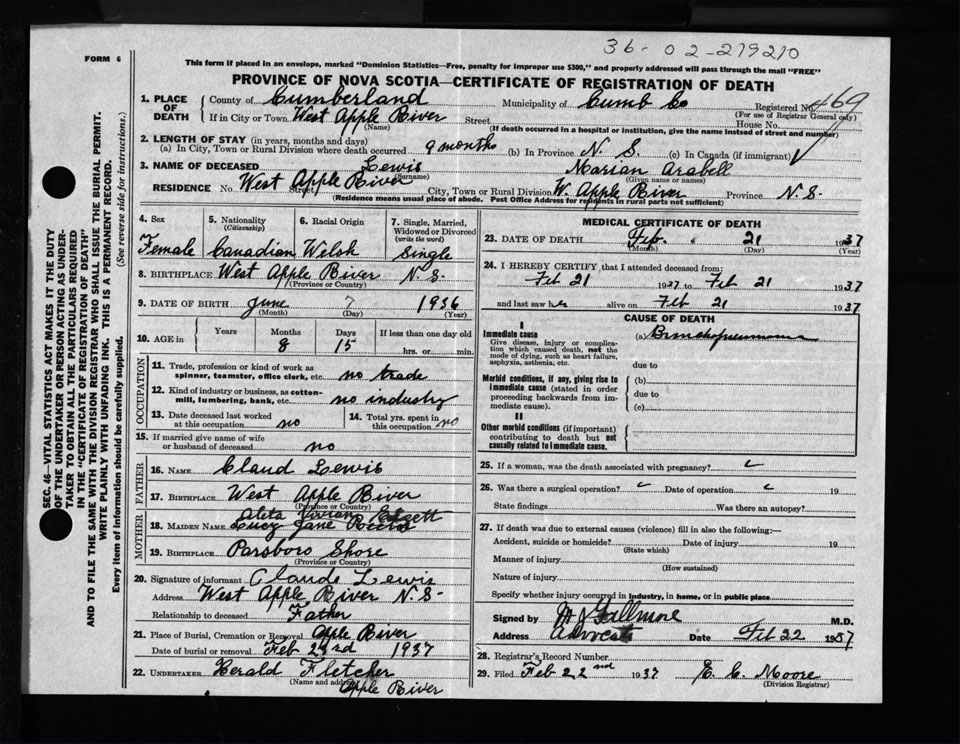 36-02-219210
FORM 6
This form if placed in an envelope, marked "Dominion Statistics—Free, penalty for improper use $300," and properly addressed will pass through the mail "FREE"
PROVINCE OF NOVA SCOTIA—CERTIFICATE OF REGISTRATION OF DEATH
SEC. 46—VITAL STATISTICS ACT MAKES IT THE DUTY
OF THE UNDERTAKER OR PERSON ACTING AS UNDER-
TAKER TO OBTAIN ALL THE PARTICULARS REQUIRED
IN THE "CERTIFICATE OF REGISTRATION OF DEATH"
AND TO FILE THE SAME WITH THE DIVISION REGISTRAR WHO SHALL ISSUE THE BURIAL PERMIT.
WRITE PLAINLY WITH UNFADING INK. THIS IS A PERMANENT RECORD.
Every item of information should be carefully supplied. (See reverse side for instructions.)
1. PLACE OF DEATH
County of Cumberland Municipality of Cumb Co Registered No. 469
(For use of Registrar General only)
If in City or Town West Apple River Street House No.
(Name) (If death occurred in a hospital or institution, give the name instead of street and number)
2. LENGTH OF STAY (in years, months and days)
(a) In City, Town or Rural Division where death occurred 9 months (b) In Province N. S. (c) In Canada (if immigrant)
3. NAME OF DECEASED Lewis Marian Arabell
(Surname) (Given name or names)
RESIDENCE No. West Apple River Street City, Town or Rural Division W. Apple River Province N.S.
(Residence means usual place of abode. Post Office Address for residents in rural parts not sufficient)
4. Sex
Female
5. Nationality
(Citizenship)
Canadian
6. Racial Origin
Welsh
7. Single, Married,
Widowed or Divorced
(write the word)
Single
8. BIRTHPLACE West Apple River N. S.
(Province or Country)
9. DATE OF BIRTH June 7 1936
(Month) (Day) (Year)
10. AGE in Years Months 8 Days 15 If less than one day old
hrs. or min.
OCCUPATION
11. Trade, profession or kind of work as
spinner, teamster, office clerk, etc. no trade
12. Kind of industry or business, as cotton-
mill, lumbering, bank, etc. no industry
13. Date deceased last worked
at this occupation no
14. Total yrs. spent in
this occupation no
15. If married give name of wife
or husband of deceased no
FATHER
16. NAME Claud Lewis
17. BIRTHPLACE West Apple River
(Province or Country)
MOTHER
Aleta Vivian
18. MAIDEN NAME Lucy Jane
19. BIRTHPLACE Parsboro Shore
(Province or Country)
20. Signature of informant Claude Lewis
Address West Apple River N. S.
Relationship to deceased Father
21. Place of Burial, Cremation or Removal Apple River
Date of burial or removal Feb 23rd 1937
22. UNDERTAKER Herald Fletcher
(Name and address) Apple River
MEDICAL CERTIFICATE OF DEATH
23. DATE OF DEATH Feb. 21 1937
(Month) (Day) (Year)
24. I HEREBY CERTIFY that I attended deceased from:
Feb 21 1937 to Feb 21 1937
and last saw her alive on Feb 21 1937
CAUSE OF DEATH
I
Immediate cause
Give disease, injury or complica-
tion which caused death, not the
mode of dying, such as heart failure,
asphyxia, asthenia, etc.
(a) Bronchopneumonia
due to
Morbid conditions, if any, giving rise to
immediate cause (stated in order
proceeding backwards from im-
mediate cause).
(b)
due to
(c)
II
Other morbid conditions (if important)
contributing to death but not
causally related to immediate cause.
25. If a woman, was the death associated with pregnancy?
26. Was there a surgical operation? Date of operation 19
State findings Was there an autopsy?
27. If death was due to external causes (violence) fill in also the following:—
Accident, suicide or homicide? Date of injury 19
(State which)
Manner of injury
(How sustained)
Nature of injury
Specify whether injury occurred in industry, in home, or in public place
Signed by M.D.
Address Advocate Date Feb 22 1937
28. Registrar's Record Number
29. Filed Feb 22nd 1937 E. C. Moore
(Division Registrar)